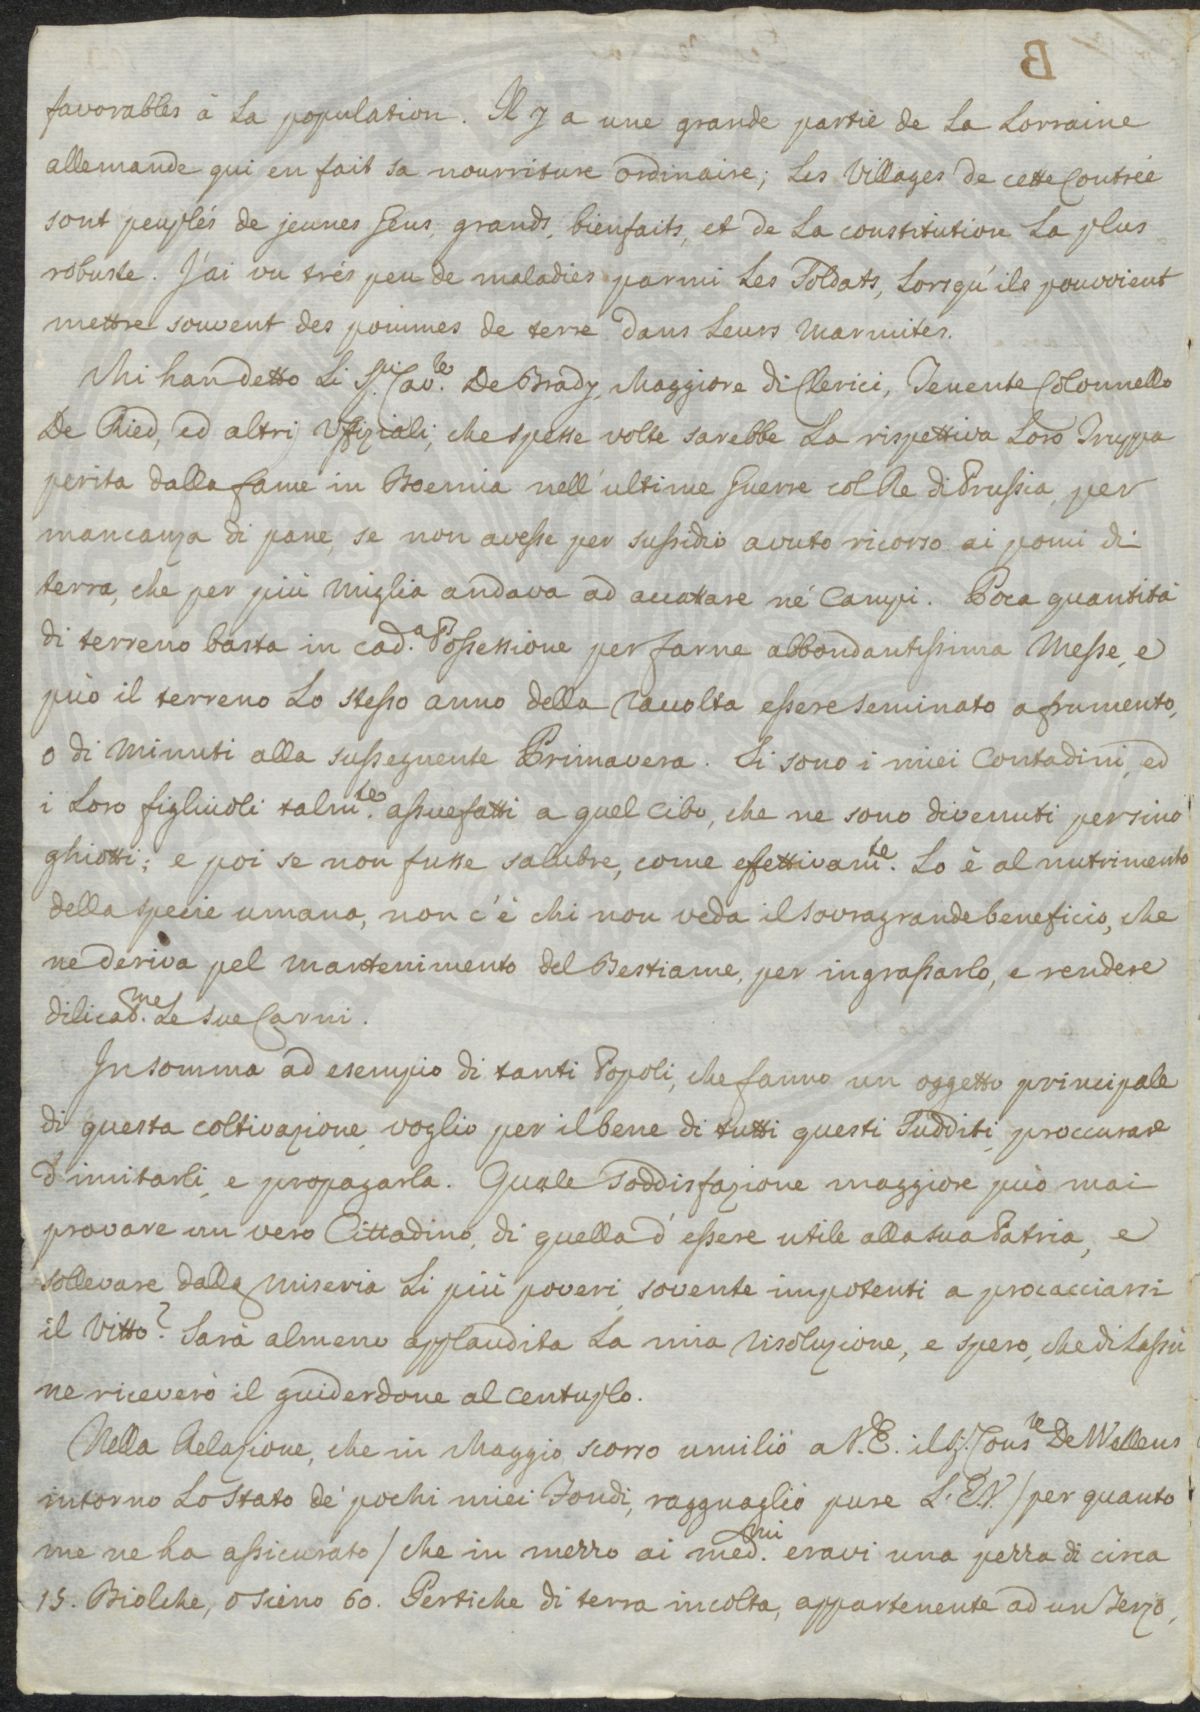 B
favorables à La population. Il y a une grande partie de La Lorraine
allemande qui en fait sa nourriture ordinaire; Les Villages de cette Contrée
sont peuplés de jeunes Gens, grands, bienfaits, et de La constitution La plus
robuste. J'ai vu trés peu de maladies parmi Les Soldats, Lorsqu'ils pouvoient
mettre souvent des pommes de terre dans Leurs Marmites.
Mi han detto Li SS.ri Cav.re De Brady, Maggiore di Clerici, Tenente Colonnello
De Ried, ed altri Uffiziali, che spesse volte sarebbe La rispettiva Loro Truppa
perita dalla fame in Boemia nell'ultime Guerre col Re di Prussia, per
mancanza di pane, se non avesse per sussidio avuto ricorso ai pomi di
terra, che per più Miglia andava ad accattare né Campi. Poca quantità
di terreno basta in cad.a Possessione per farne abbondantissima Messe, e
può il terreno Lo stesso anno della raccolta essere seminato a frumento,
o di Minuti alla susseguente Primavera. Si sono i miei Contadini, ed
i Loro figliuoli talm.te assuefatti a quel Cibo, che ne sono divenuti persino
ghiotti; e poi se non fusse salubre, come effettivam.te Lo è al nutrimento
della specie umana, non c'è chi non veda il sovragrande beneficio, che
ne deriva pel Mantenimento del Bestiame, per ingrassarlo, e rendere
dilicad.me Le sue Carni.
In somma ad esempio di tanti Popoli, che fanno un oggetto principale
di questa coltivazione, voglio per il bene di tutti questi Sudditi, proccurare
d'imitarli, e propagarla. Quale Soddisfazione maggiore può mai
provare un vero Cittadino, di quella d'essere utile alla sua Patria, e
sollevare dalla Miseria Li più poveri, sovente impotenti a procacciarsi
il Vitto? Sarà almeno applaudita La mia risoluzione, e spero, che di Lassù
ne riceverò il guiderdone al Centuplo.
Nella Relazione, che in Maggio scorso umiliò a V.E. il Sig. Cons.re De Wellens
intorno Lo Stato de' pochi miei Fondi, ragguagliò pure L'E.V. / per quanto
me ne ha assicurato / che in mezzo ai med.mi eravi una pezza di circa
15. Biolche, o sieno 60. Pertiche di terra incolta, appartenente ad un Terzo,